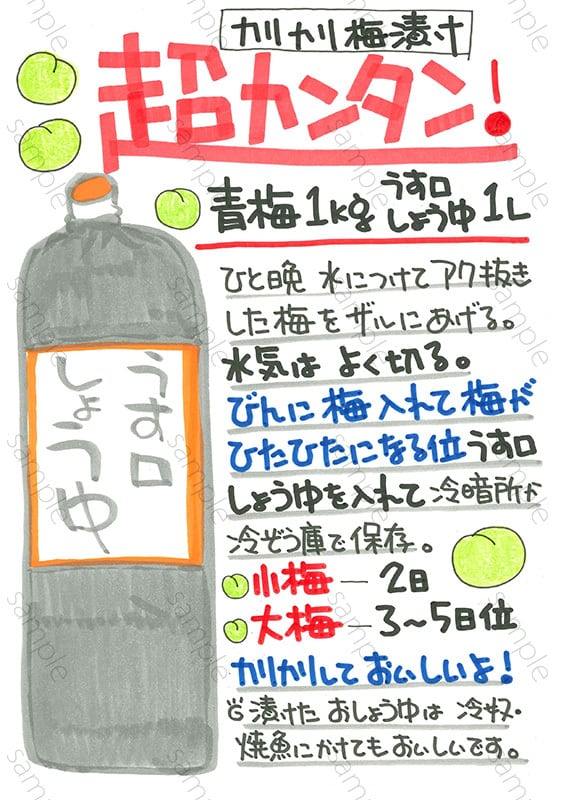 カリカリ梅漬け
超カンタン!
青梅1kg うす口しょうゆ 1L
ひと晩 水につけてアク抜き
した梅をザルにあげる。
水気は よく切る。
びんに梅入れて梅が
ひたひたになる位うす口
しょうゆを入れて冷暗所か
冷ぞう庫で保存。
小梅―2日
大梅―3~5日位
カリカリしておいしいよ!
漬けたおしょうゆは 冷奴・
焼魚にかけてもおいしいです。
うす口
しょうゆ
sample